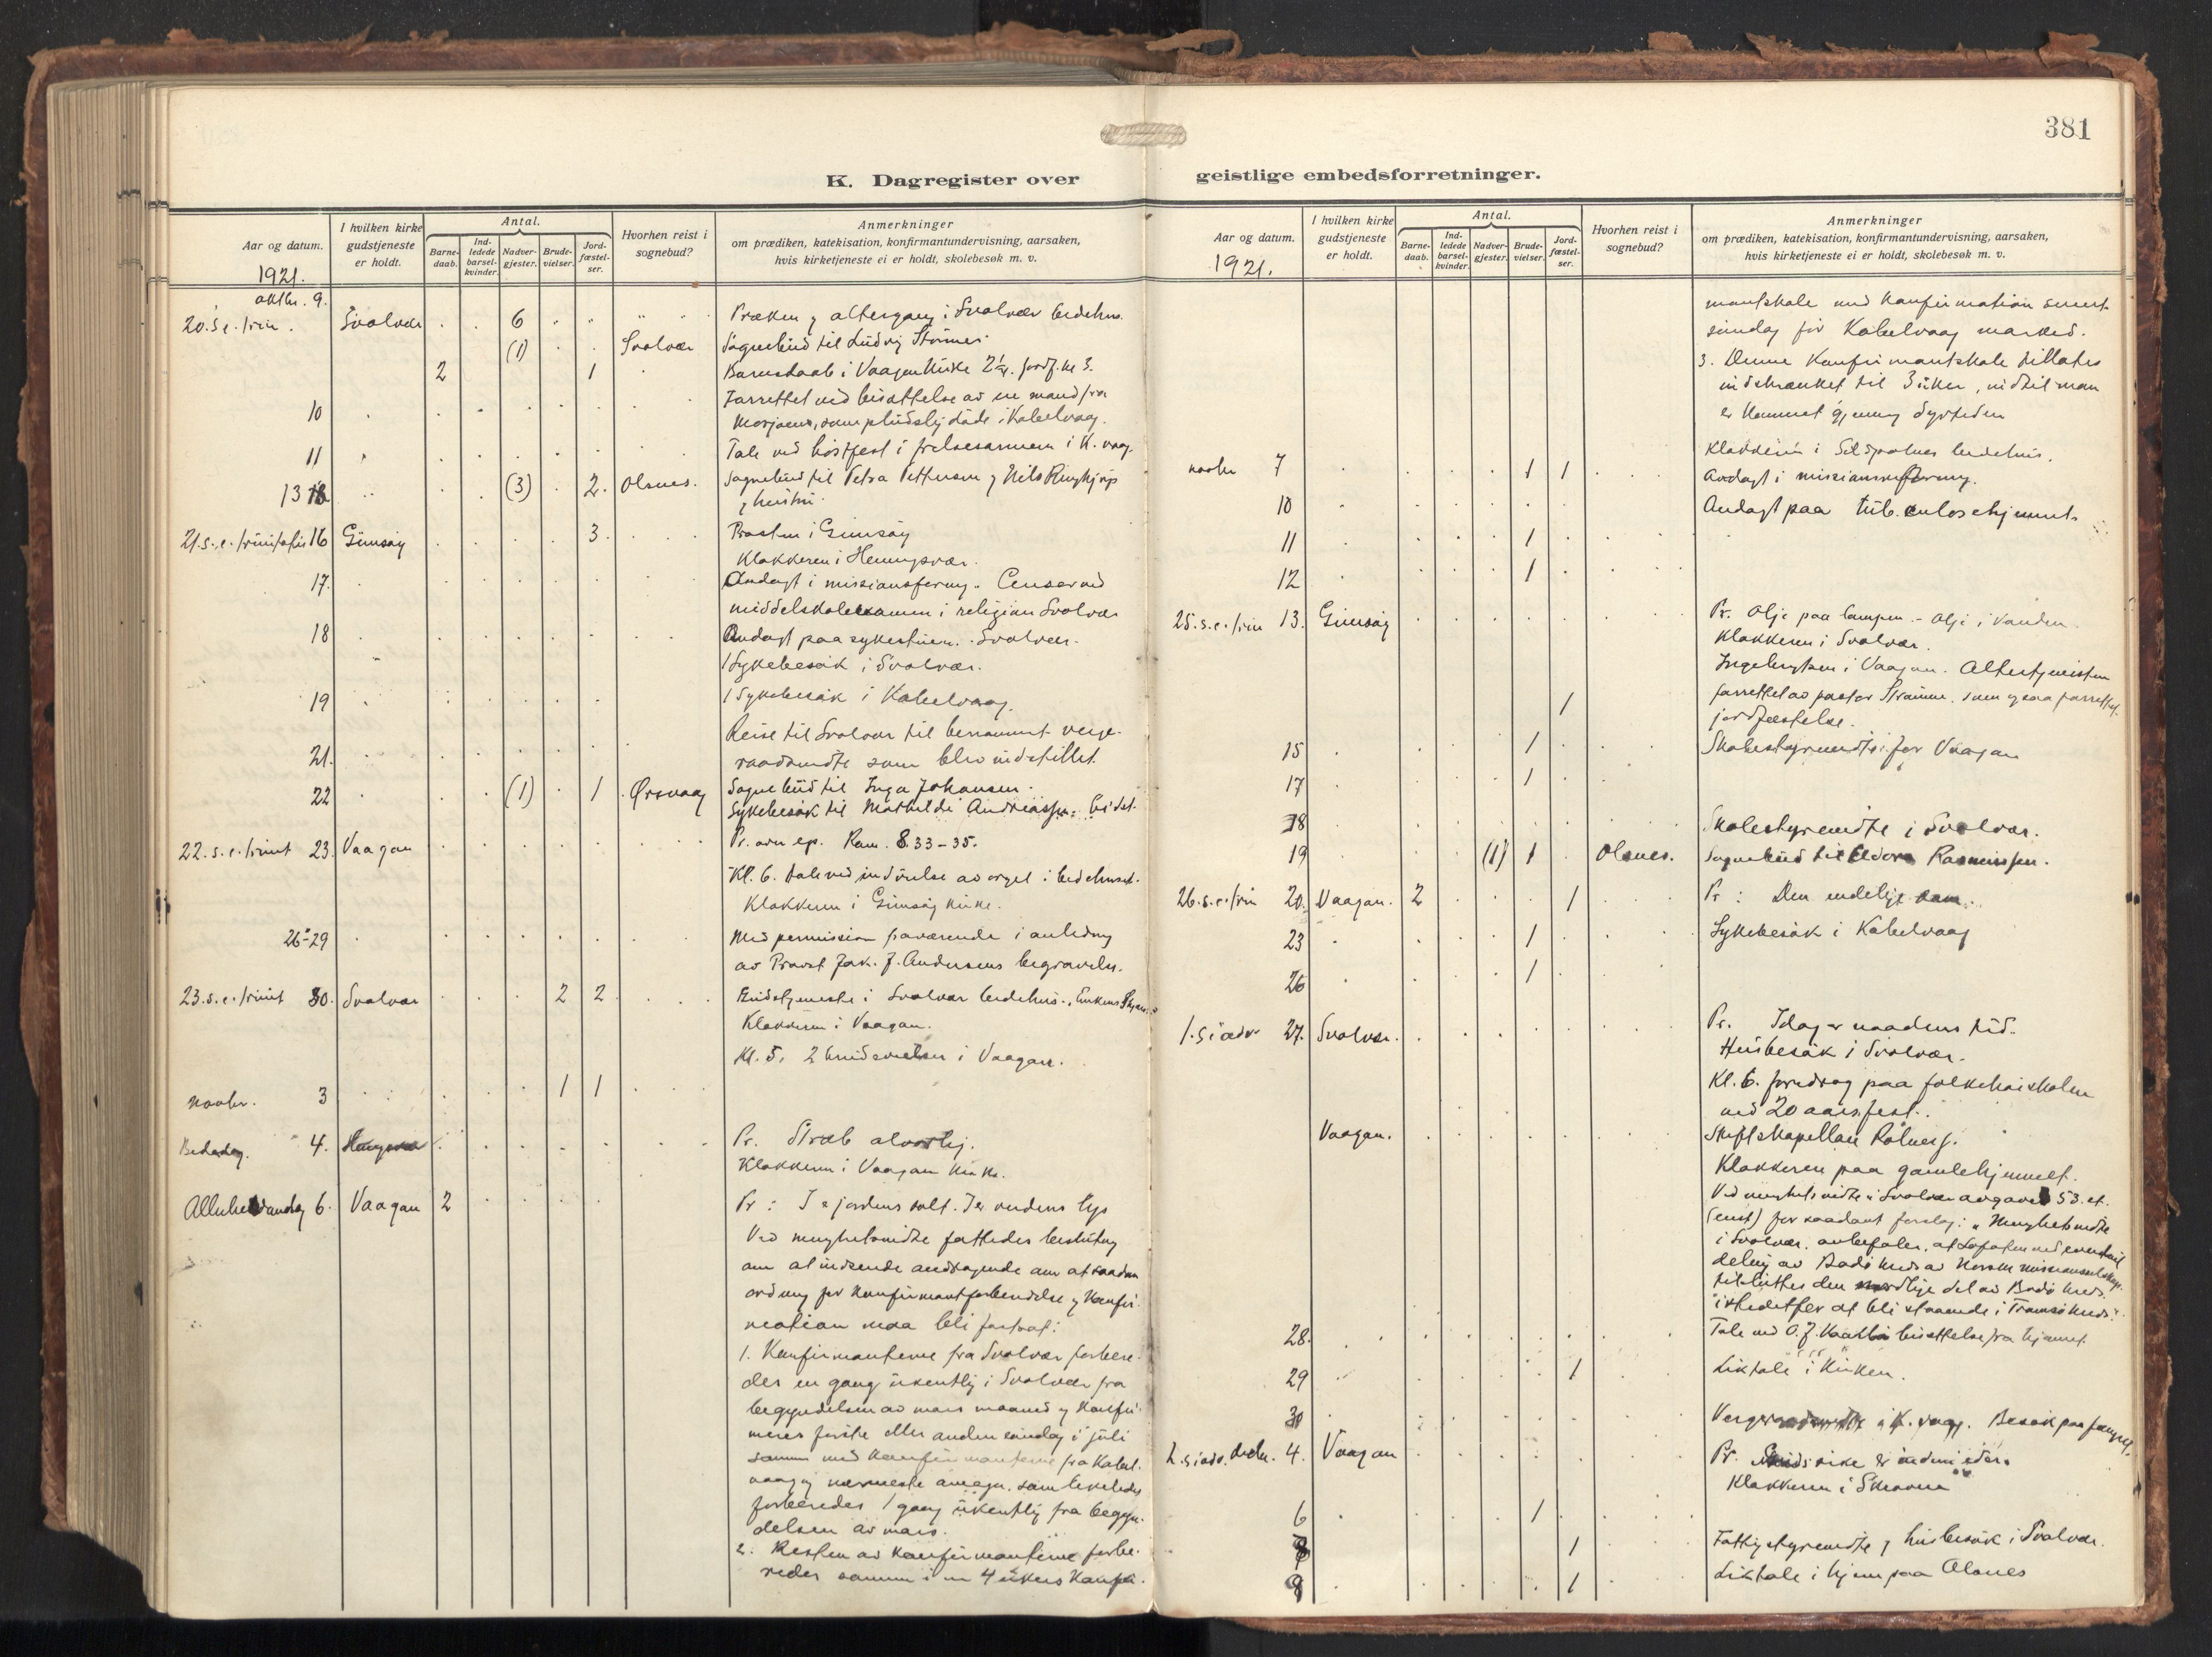 381
K. Dagregister over geistlige embedsforretninger.
Aar og datum.
1921.
I hvilken kirke gudstjeneste er holdt.
Antal.
Barne-daab.
Ind-ledede barsel-kvinder.
Nadver-gjester.
Brude-vielser.
Jord-fæstel-ser.
Hvorhen reist i sognebud?
Anmerkninger
om prædiken, katekisation, konfirmantundervisning, aarsaken,
hvis kirketjeneste ei er holdt, skolebesøk m. v.
oktbr. 9.
20. s. e. trin. Svolvær 6 Præken og altergang i Svolvær bedehus.
(1) Svolvær Sognebud til Ludvig
2 1 Barnedaab i Vaagan kirke
10 Forrettet ved bisættelse av en mand fra
som pludselig døde i Kabelvaag.
11 Tale ved høstfest i frelsesarmeen i K. vaag.
13 (3) 2. Olsnes. Sognebud til Petra Pettersen og Nils
og hustru.
21. s. e. trinitatis 16 Gimsøy 3. Prosten i Gimsøy
Klokkeren i Henningsvær.
17. Andagt i missionsforening. Censor ved
middelskoleexamen i religion Svolvær
18 Andagt paa sykestuen. Svolvær.
1 Sykebesøk i Svolvær.
19 1 Sykebesøk i Kabelvaag.
21. Reise til Svolvær til berammet verge-
raadsmøte som blev indstillet.
22 (1) 1 Ørsvaag Sognebud til Inga Johansen.
Sykebesøk til Mathilde Andreassen
22. s. e. trinit 23. Vaagan Pr. over ep. Rom. 8.33-35.
Kl. 6. tale ved indvielse av orgel i bedehuset.
Klokkeren i Gimsøy kirke.
26-29 Med permission fraværende i anledning
av Provst Jak. J. Andersens begravelse.
23. s. e. trinit 30. Svolvær 2 2 Gudstjeneste i Svolvær bedehus.
Klokkeren i Vaagan.
Kl. 5. 2 brudevielser i Vaagan.
novbr. 3 1 1
Bededag. 4. Pr. Stræb alvorlig.
Klokkeren i Vaagan kirke.
6. Vaagan 2 Pr: I er jordens salt. I er verdens lys
Ved menighetsmøte fattedes beslutning
om at indsende andragende om at saadan
ordning for konfirmantforberedelse og konfir-
mation maa bli fastsat:
1. Konfirmanterne fra Svolvær forbere-
des en gang ukentlig i Svolvær fra
begyndelsen av mars maaned og konfir-
meres første eller anden søndag i juli
sammen med konfirmanterne fra Kabel-
vaag og nærmeste omegn, som likeledes
forberedes 1 gang ukentlig fra begyn-
delsen av mars.
2. Resten av konfirmanterne forbe-
redes sammen i en 4 ukers konfir-
Aar og datum.
1921.
I hvilken kirke gudstjeneste er holdt.
Antal.
Barne-daab.
Ind-ledede barsel-kvinder.
Nadver-gjester.
Brude-vielser.
Jord-fæstel-ser.
Hvorhen reist i sognebud?
Anmerkninger
om prædiken, katekisation, konfirmantundervisning, aarsaken,
hvis kirketjeneste ei er holdt, skolebesøk m. v.
mantskole med konfirmation senest
søndag før Kabelvaag marked.
3. Denne konfirmantskole tillates
indskrænket til 3 uker, indtil man
er kommet gjennem dyrtiden
Klokkeren i bedehus.
novbr 7 1 1 Andagt i missionsforening.
10 Andagt paa tuberkulosehjemmet.
11 1
12 1
25. s. e. trin 13. Gimsøy Pr. Olje paa lampen. - Olje i
Klokkeren i Svolvær.
i Vaagan. Altertjenesten
1 forrettet av pastor som ogsaa forrettet
jordfæstelse.
15 1 Skolestyremøte for Vaagan
17 1
18 Skolestyremøte i Svolvær.
19 (1) 1 Olsnes. Sognebud til Rasmussen.
26. s. e. trin 20. Vaagan. 2 1 Pr: Den endelige dom.
23 1 Sykebesøk i Kabelvaag
26 1
1. s i adv 27. Svolvær. Pr. Idag er naadens tid.
Husbesøk i Svolvær.
Kl. 6. foredrag paa folkehøiskolen
ved 20 aars fest.
Vaagan. Stiftskapellan
Klokkeren paa gamlehjemmet.
Ved menighetsmøte i Svolvær avgaves 53. st.
(enst) for saadant forslag: "Menighetsmøte
i Svolvær anbefaler, at Lofoten ved eventuel
deling av Bodø kreds av Norske missionsselskap
tilsluttes den nordlige del av Bodø kreds
istedetfor at bli staaende i Tromsø kreds.
28. Tale ved O. J. bisættelse fra hjemmet.
29 1 Liktale i kirken.
30 Vergeraadsmøte i K. vaag. Besøk paa fængsel.
2. s i adv. decbr. 4. Vaagan Pr. Guds rike er inden i eder.
Klokkeren i Skrova
6 1
1 Fattigstyremøte og husbesøk i Svolvær.
1 Liktale i hjem paa Olsnes